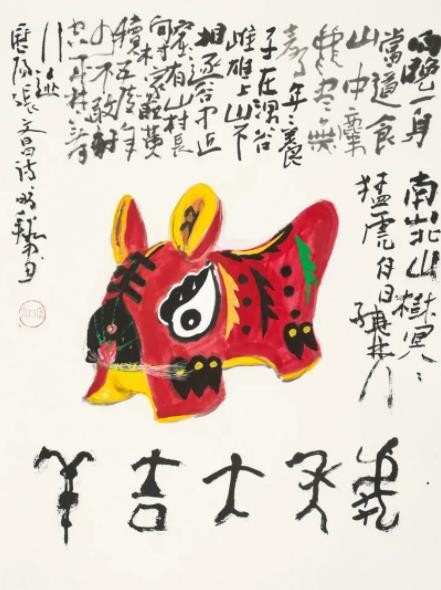 南北山樹冥〻
猛虎白日
繞林行
向晚一身
當道食
山中麋
鹿盡無
聲年〻養
子在深谷
雌雄上山下
相逐谷中近
窟有山村長
向村家取黃
犢五陵年
少不敢射
空來林下看
行迹
歷陽張文昌詩
虎年大吉羊